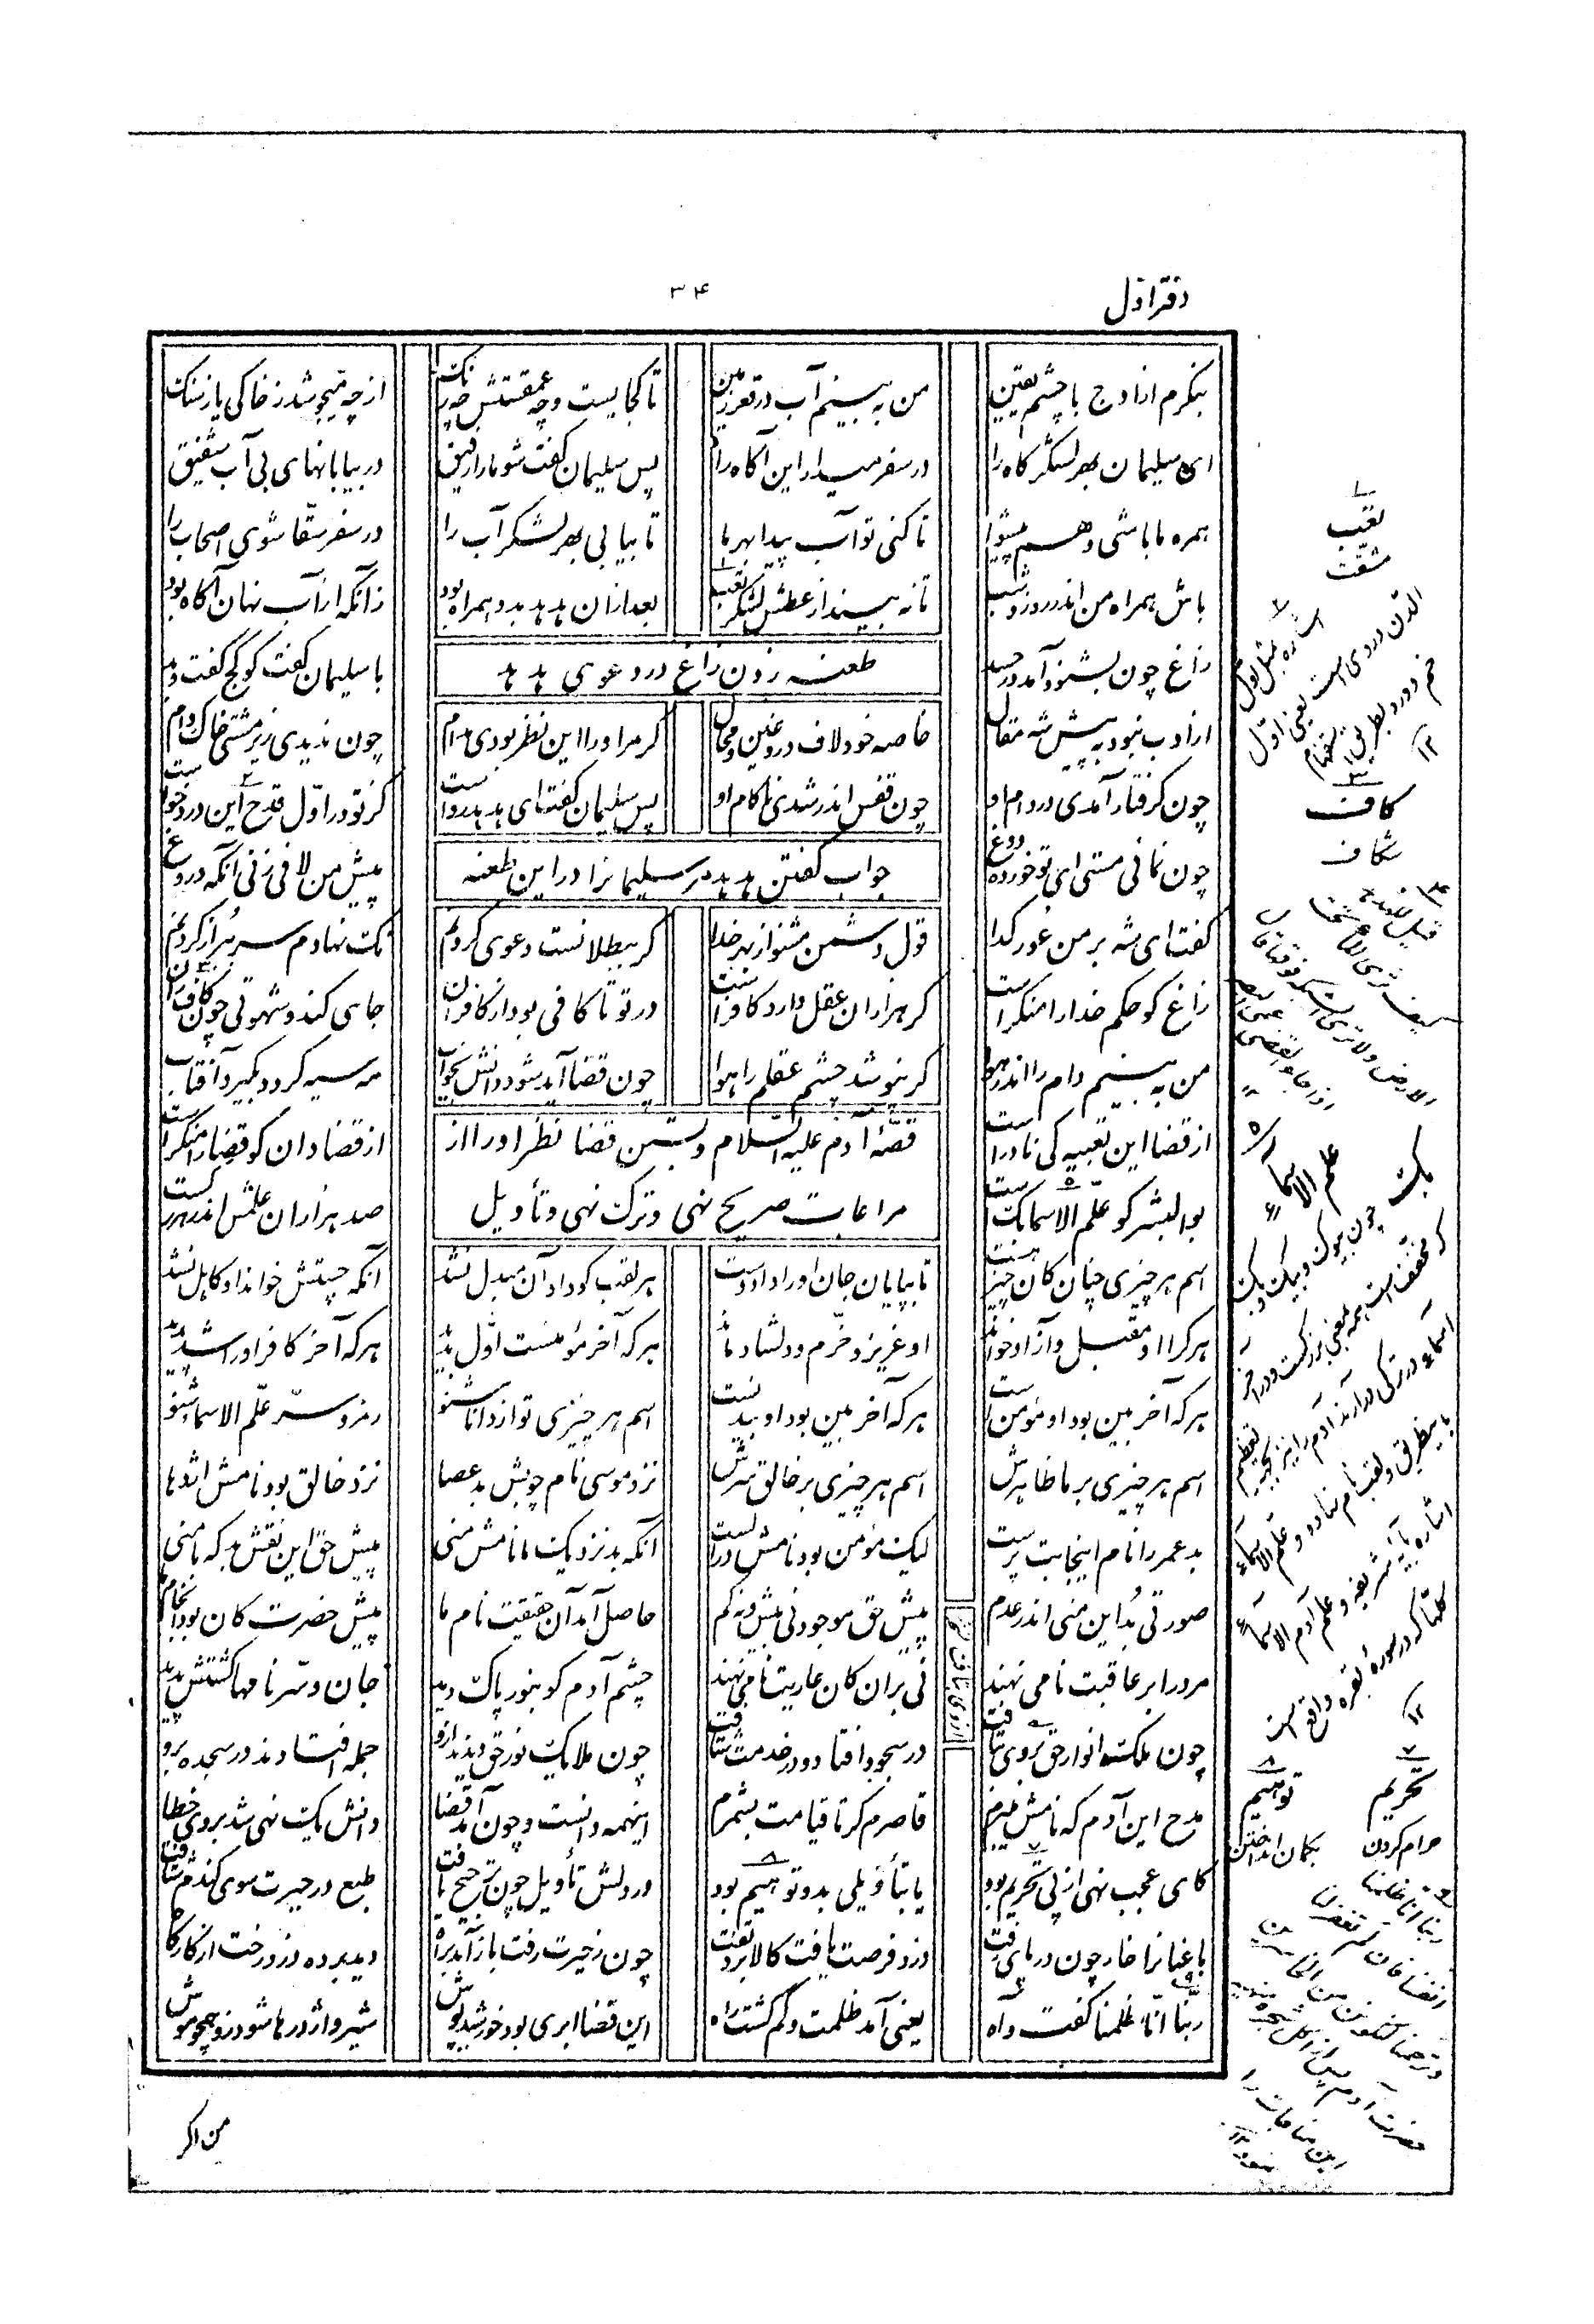 دفتر اول
۳۴
بنگرم از اوج با چشم یقین من به بینم آب در قعر زمین تا کجایست و چه عمقستش چه رنگ از چه میجوشد ز خاکی یا ز سنگ
ای سلیمان بهر لشکرگاه را در سفر میدار این آگاه را پس سلیمان گفت شو ما را رفیق در بیابانهای بی آب شفیق
همره ما باشی و هم پیشوا تا کنی تو آب پیدا بهر ما تا بیابی بهر لشکر آب را در سفر سقا شوی اصحاب را
باش همراه من اندر روز و شب تا نه بیند از عطش لشکر تعب بعد ازان هدهد بدو همراه بود زانکه از آب نهان آگاه بود
طعنه زدن زاغ در دعوی هدهد
زاغ چون بشنود آمد در حسد با سلیمان گفت کو کج گفت و بد
از ادب نبود به پیش شه مقال خاصه خود لاف دروغین و محال گر مر او را این نظر بودی مدام چون ندیدی زیر مشتی خاک دام
چون گرفتار آمدی در دام او چون قفس اندر شدی ناکام او پس سلیمان گفت ای هدهد رواست کز تو در اول قدح این درد خواست
جواب گفتن هدهد مر سلیمانرا در این طعنه
چون نمائی مستی ای تو خورده دوغ پیش من لافی زنی آنگه دروغ
گفت ای شه بر من عور گدا قول دشمن مشنو از بهر خدا گر ببطلانست دعوی کردنم نک نهادم سر ببر از گردنم
زاغ کو حکم خدا را منکرست گر هزاران عقل دارد کافرست در تو تا کافی بود از کافران جای کند و شهوتی چون کاف ران
من به بینم دام را اندر هوا گر نپوشد چشم عقلم را هوا چون قضا آید شود دانش بخواب مه سیه گردد بگیرد آفتاب
قصهٔ آدم علیه السلام و بستن قضا نظر او را از
مراعات صریح نهی و ترک نهی و تأویل
از قضا این تعبیه کی نادرست از قضا دان کو قضا را منکرست
بوالبشر کو علم الاسما بگست صد هزاران علمش اندر هر رگست
اسم هر چیزی چنان کان چیز هست تا بپایان جان او را داد دست هر لقب کو داد آن مبدل نشد آنکه چستش خواند او کاهل نشد
هرکرا او مقبل و آزاد خواند او عزیز و خرم و دلشاد ماند هرکه آخر مؤمنست اول بدید هرکه آخر کافر او را شد پدید
هرکه آخر بین بود او مؤمن است هرکه آخر بین بود او بیدنست اسم هر چیزی تو از دانا شنو رمز و سر علم الاسما شنو
اسم هر چیزی بر ما ظاهرش اسم هر چیزی بر خالق سرش نزد موسی نام چوبش بد عصا نزد خالق بود نامش اژدها
بد عمر را نام اینجا بت پرست لیک مؤمن بود نامش در الست آنکه بد نزدیک ما نامش منی پیش حق این نقش بد که با منی
صورتی بد این منی اندر عدم پیش حق موجود نی بیش و نه کم حاصل آمد آن حقیقت نام ما پیش حضرت کان بود انجام ما
مرد را بر عاقبت نامی نهند نی بران کان عاریت نامی نهند چشم آدم کو بنور پاک دید جان و سر نامها گشتش پدید
چون ملک انوار حق بروی بتافت در سجود افتاد و در خدمت شتافت چون ملایک نور حق دیدند ازو جمله افتادند در سجده برو
مدح این آدم که نامش میبرم قاصرم گر تا قیامت بشمرم اینهمه دانست و چون آمد قضا دانش یک نهی شد بروی خطا
کای عجب نهی از پی تحریم بود یا بتأویلی بد و توهیم بود در دلش تأویل چون ترجیح یافت طبع در حیرت سوی گندم شتافت
باغبانرا خار چون در پای رفت دزد فرصت یافت کالا برد تفت چون ز حیرت رفت باز آمد براه دید برده دزد رخت از کارگاه
ربنا انا ظلمنا گفت و آه یعنی آمد ظلمت و گم گشت راه این قضا ابری بود خورشید پوش شیر و اژدرها شود زو همچو موش
من اگر
۱
تعب
مشقت
۳
کاف
شکاف
۵
علم الاسماء
۷
تحریم
حرام کردن
۸
توهیم
بگمان انداختن
۹
ربنا انا ظلمنا